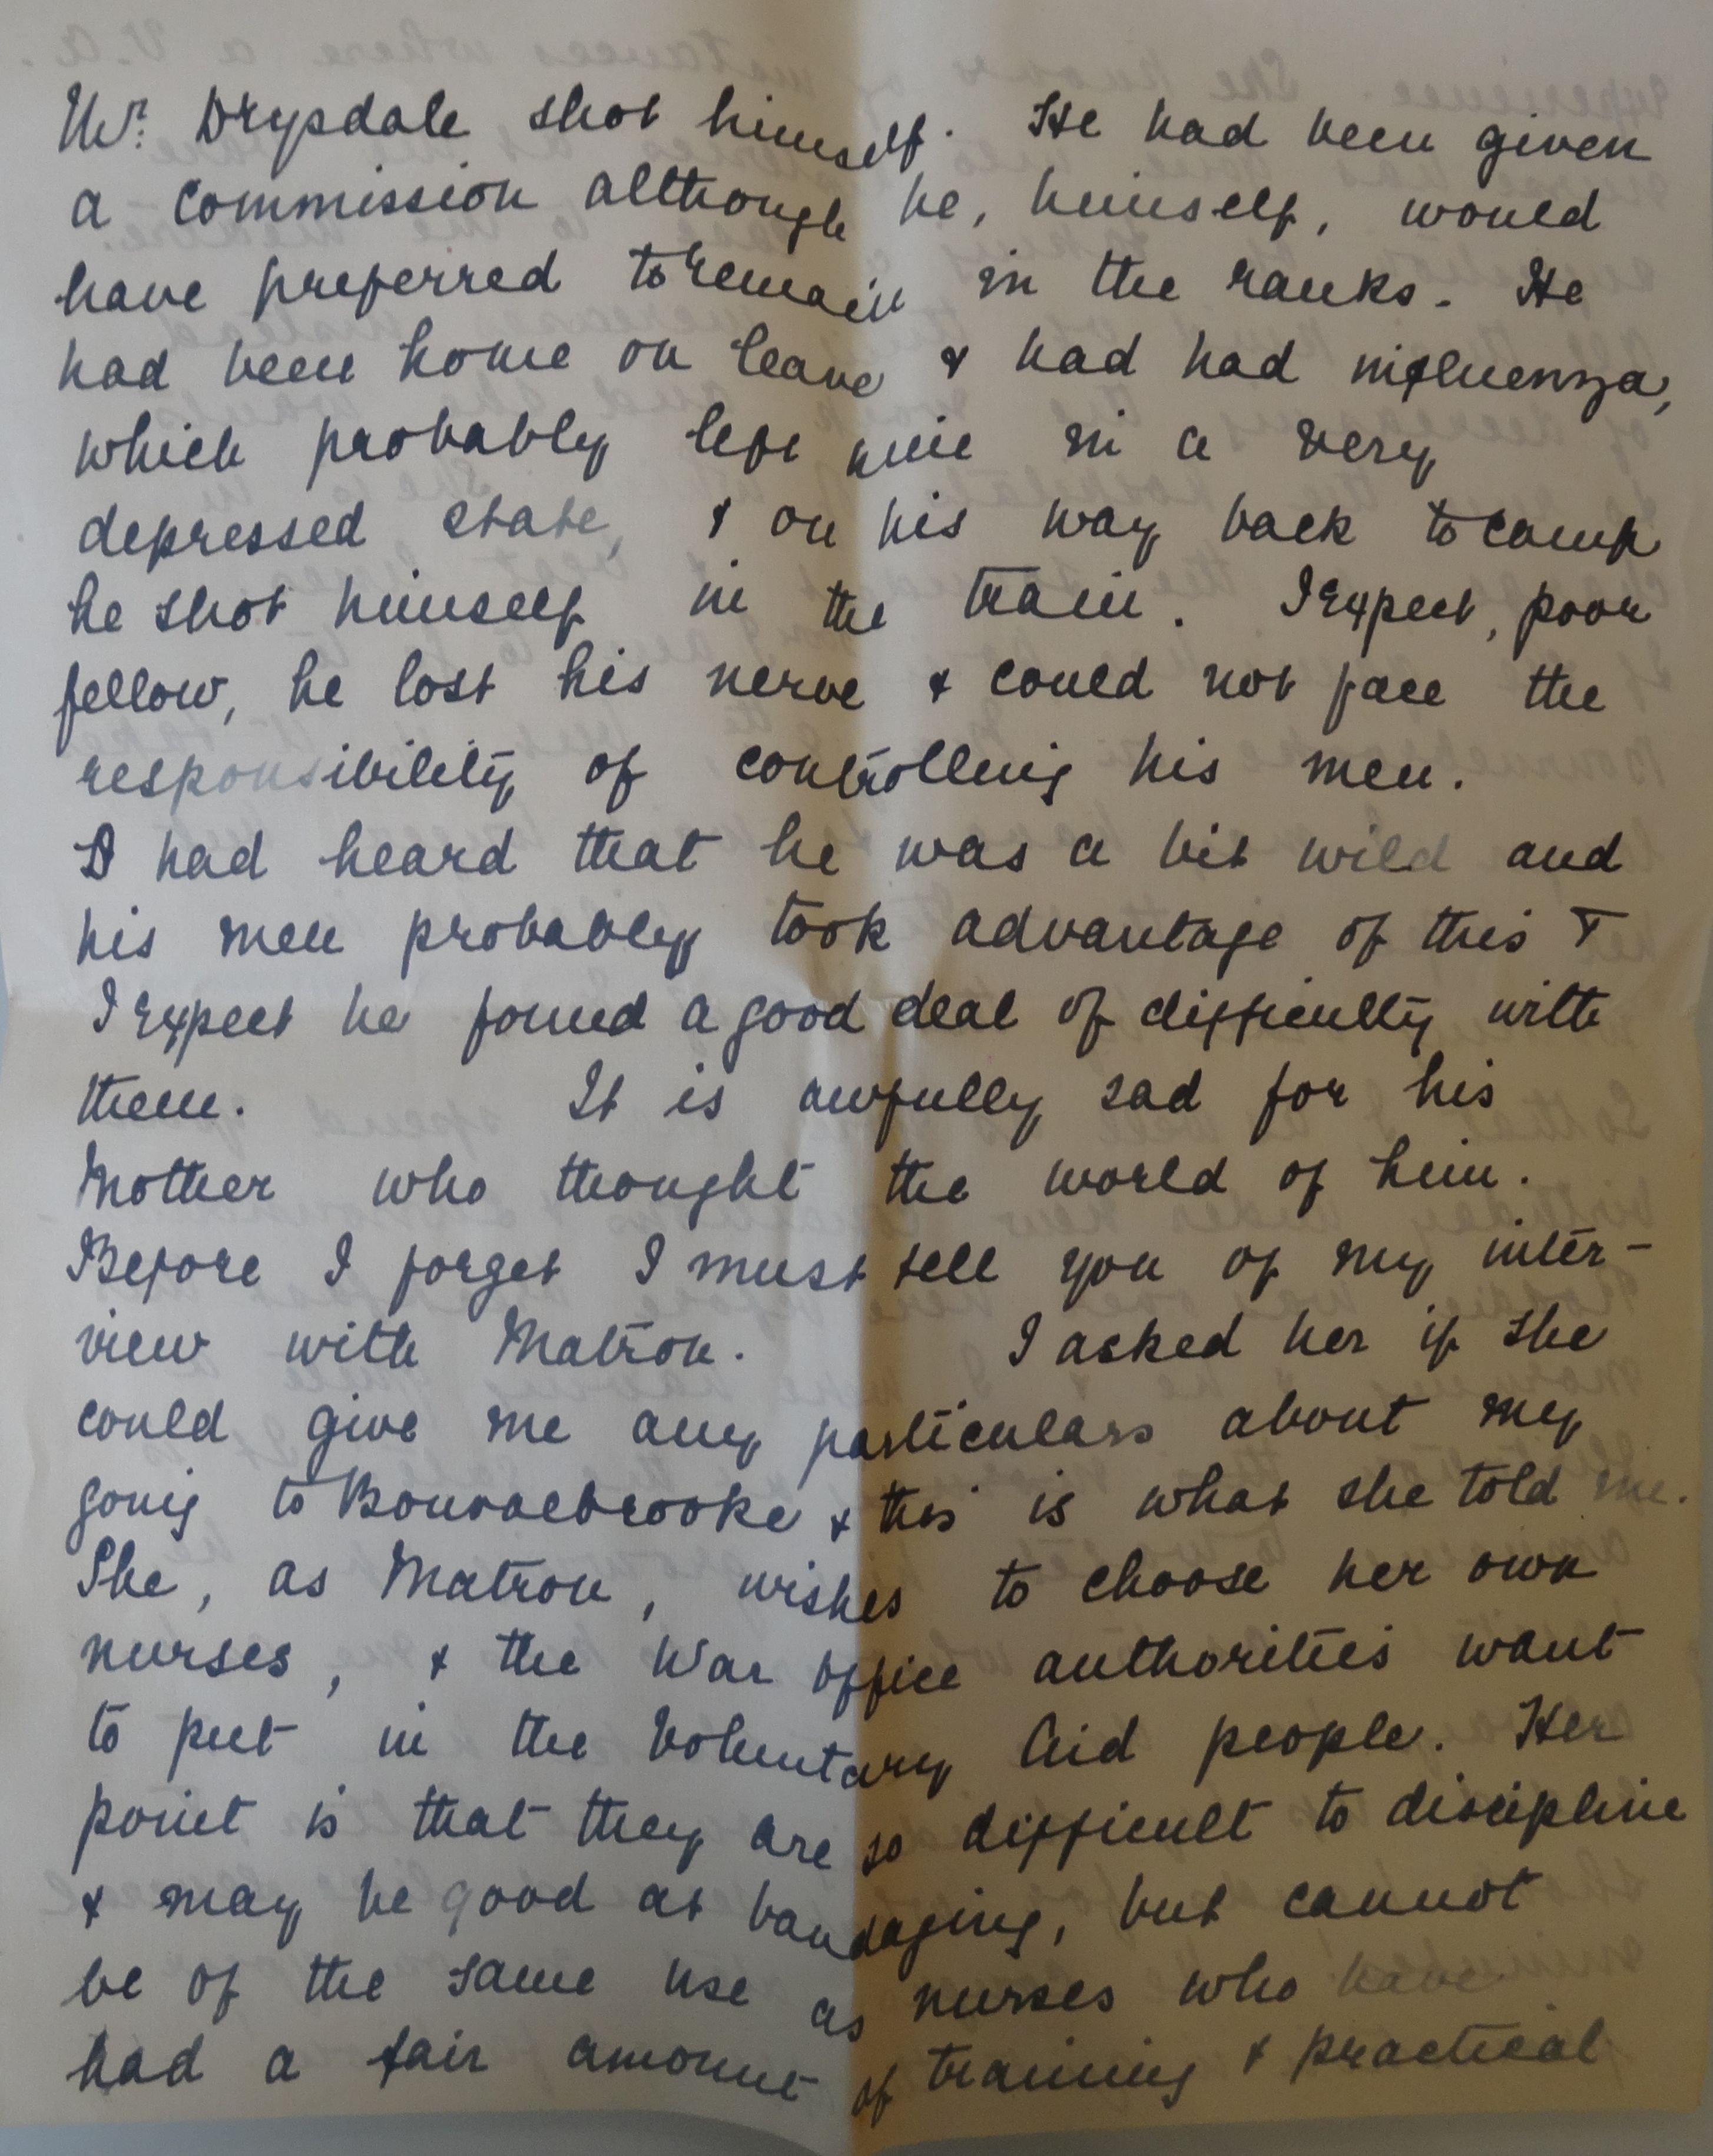 Mr. Drysdale shot himself. He had been given
a commission although he, himself, would
have preferred to remain in the ranks. He
had been home on leave & had had influenza,
which probably left him in a very
depressed state, & on his way back to camp
he shot himself in the train. I expect, poor
fellow, he lost his nerve & could not face the
responsibility of controlling his men.
I had heard that he was a bit wild and
his men probably took advantage of this &
I expect he found a good deal of difficulty with
them. It is awfully sad for his
Mother who thought the world of him.
Before I forget I must tell you of my inter-
view with Matron. I asked her if she
could give me any particulars about my
going to Bournebrooke & this is what she told me.
She, as Matron, wishes to choose her own
nurses, & the War Office authorities want
to put in the Voluntary Aid people. Her
point is that they are so difficult to discipline
& may be good at bandaging, but cannot
be of the same use as nurses who have
had a fair amount of training & practical